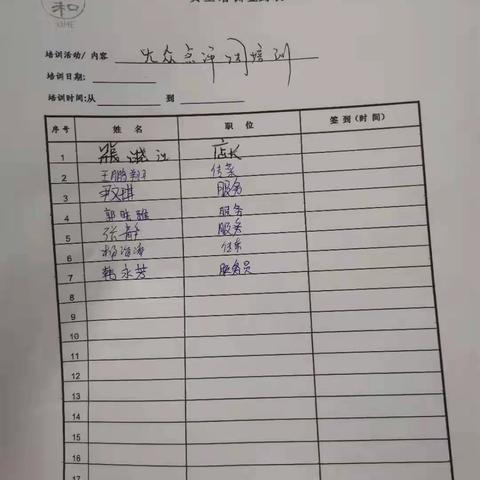 和
XIHE
培训活动/ 内容 大众点评网培训
培训日期:
培训时间:从 到
序号 姓 名 职 位 签 到 (时 间)
1 店长
2 王鹏翔 传菜
3 尹双琪 服务
4 郭晓雅 服务
5 张静 服务
6 传菜
7 韩永芳 服务员
8
9
10
11
12
13
14
15
16
17